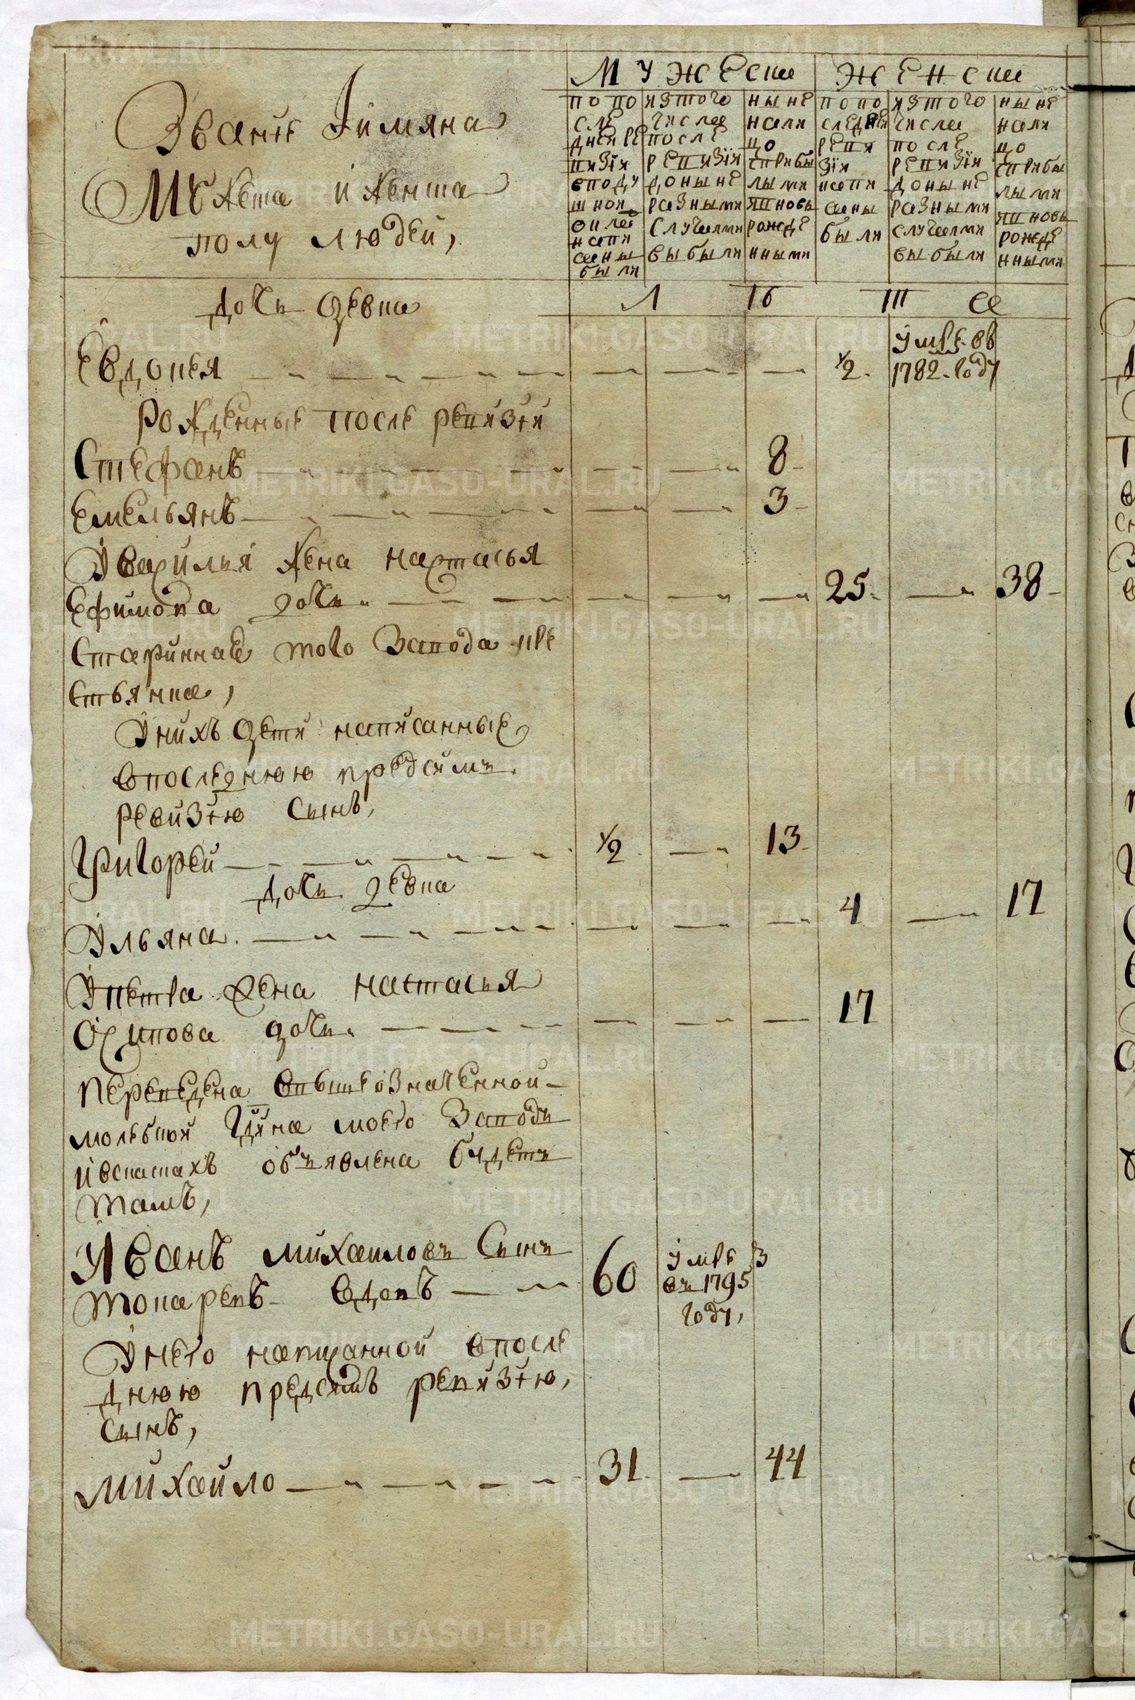 Званіе Іимяна
Мужеска и женска
полу людей,
МУЖЕСКИ
ЖЕНСКИ
попо следней ревизіи вподушной оклад написаны были
изтого числа после ревизіи доныне разными случаями выбыли
ныне налицо сприбылыми ивновь рожденными
попоследней ревизіи написаны были
изтого числа после ревизіи доныне разными случаями выбыли
ныне налицо сприбылыми ивновь рожденными
дочь девка
Евдокея 1/2 умре въ
1782 году
Рожденные после ревизіи
Стефанъ 8
Емельянъ 3
Уварилья жена настасья
Ефимова дочь 25 38
Стариннаго того Завода кре
стьянка,
Уних дети написанные
впоследнюю предсимъ
ревизію сынъ,
Григорей 1/2 13
дочь девка
Ульяна 4 17
Упетра жена настасья
Осипова дочь 17
переведена ввышеозначенной
моево Заводъ
объявлена будетъ
тамъ,
Иванъ михаиловъ Сынъ 60 умре в
токаревъ вдовъ въ 1795
году,
Унего написанной впосле
днюю предсимъ ревизію,
сынъ,
михайло 31 44
METRIKI.GASO-URAL.RU